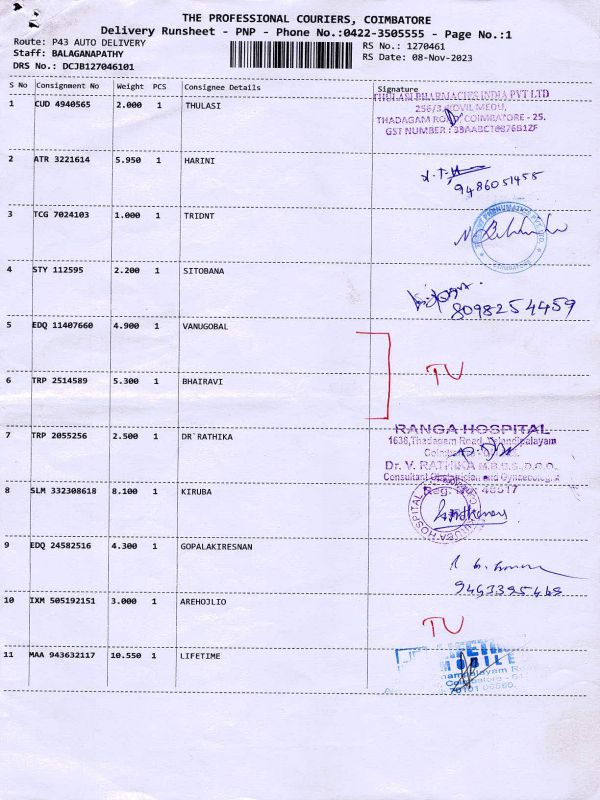 THE PROFESSIONAL COURIERS, COIMBATORE
Delivery Runsheet - PNP - Phone No.:0422-3505555 - Page No.:1
Route: P43 AUTO DELIVERY
Staff: BALAGANAPATHY
DRS No.: DCJB127046101
RS No.: 1270461
RS Date: 08-Nov-2023
S No Consignment No Weight PCS Consignee Details Signature
1 CUD 4940565 2.000 1 THULASI
THULASI PHARMACIES INDIA PVT LTD
256/3, KOVIL MEDU,
THADAGAM ROAD COIMBATORE - 25.
GST NUMBER :
2 ATR 3221614 5.950 1 HARINI
9486051455
3 TCG 7024103 1.000 1 TRIDNT
COIMBATORE
4 STY 112595 2.200 1 SITOBANA
8098254459
5 EDQ 11407660 4.900 1 VANUGOBAL
TU
6 TRP 2514589 5.300 1 BHAIRAVI
7 TRP 2055256 2.500 1 DR`RATHIKA
RANGA HOSPITAL
1638,Thadagam Road,
Dr. V. RATHIKA M.B.B.S., D.G.O.,
Consultant Obstetrician and Gynaecologist
Reg. No: 48517
8 SLM 332308618 8.100 1 KIRUBA
HOSPITAL
9 EDQ 24582516 4.300 1 GOPALAKIRESNAN
10 IXM 505192151 3.000 1 AREHOJLIO
TU
11 MAA 943632117 10.550 1 LIFETIME
LIFETIME
MOBILE